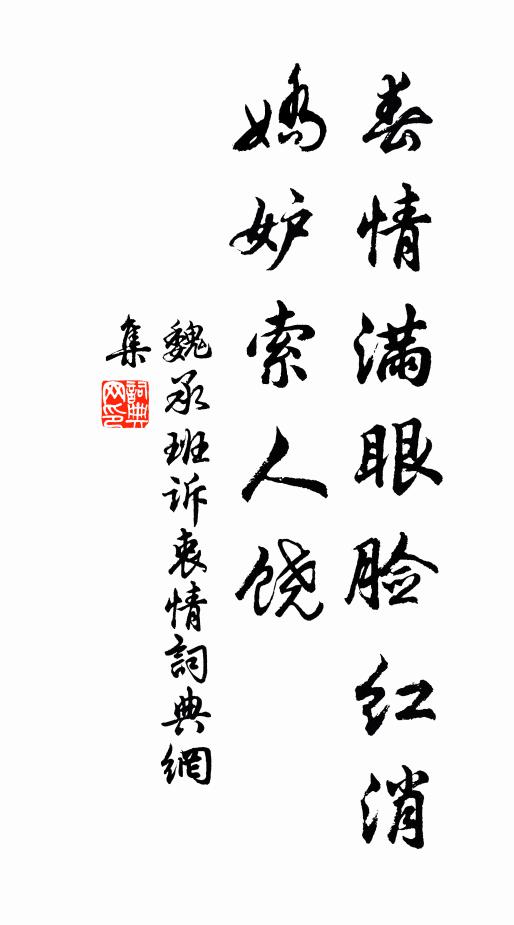 春情满眼脸红消
娇妒索人饶
魏承班诉衷情詞典網
集
詞典網印